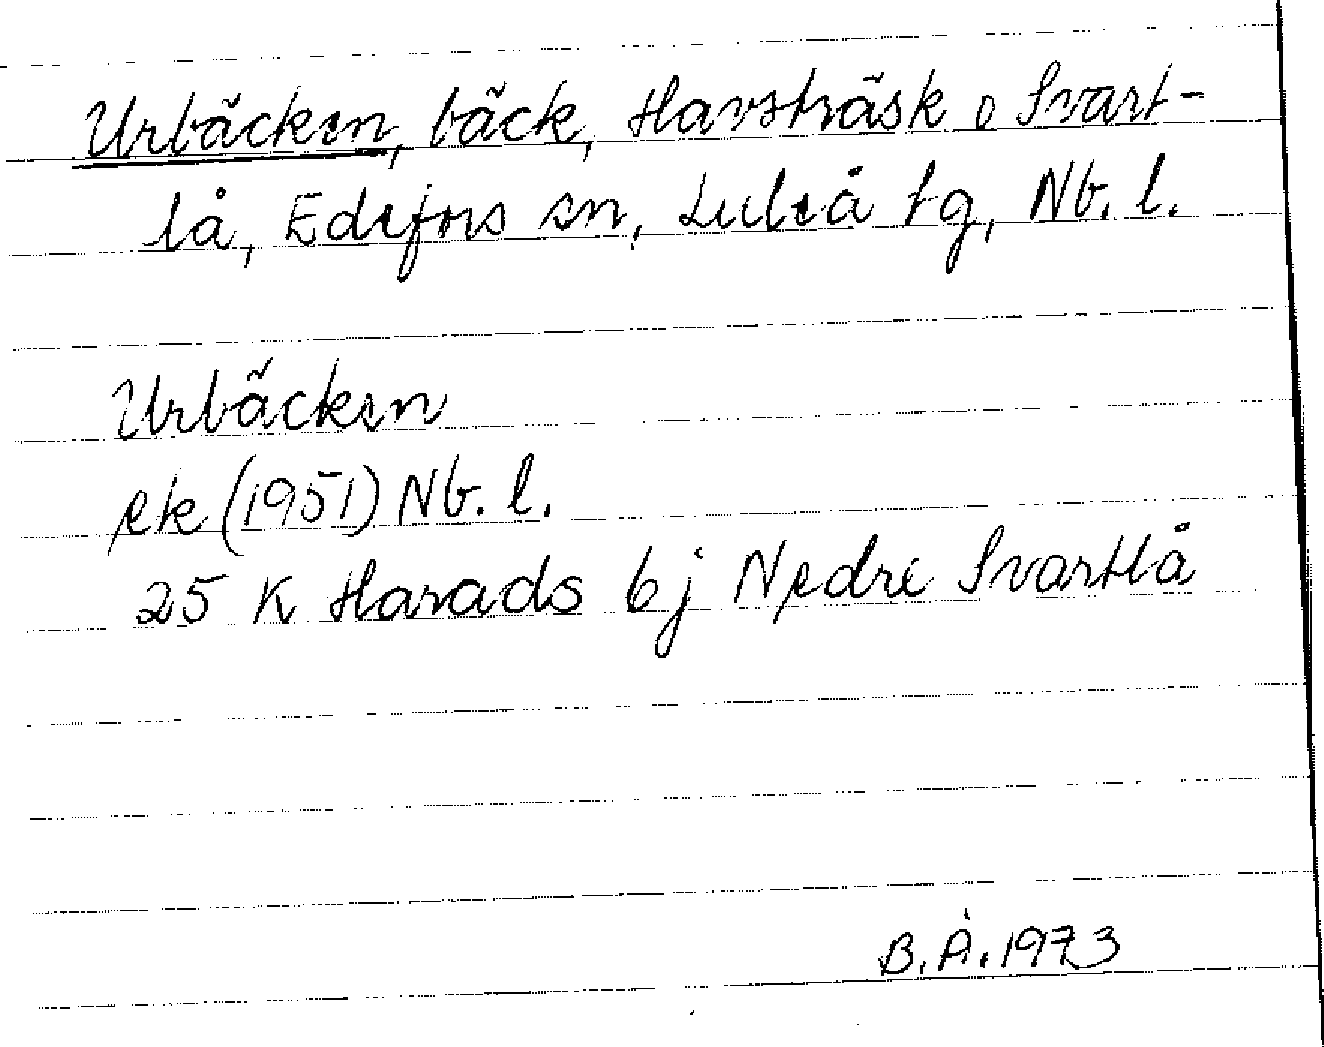 Urbäcken, bäck, Havsträsk o Svart-
lå, Edefors sn, Luleå tg, Nb. l.
Urbäcken
ek (1951) Nb. l.
25 K Harads 6j Nedre Svartlå
B.Å. 1973